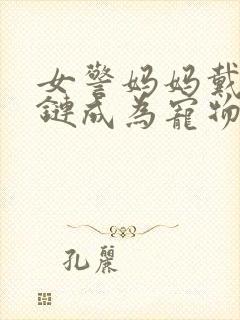 女警妈妈戴
鏈成為寵物
孔麗